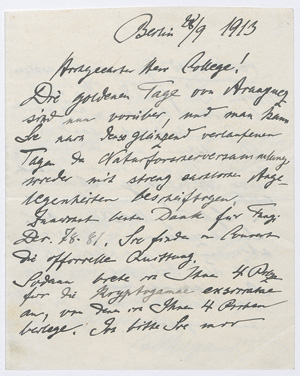 Berlin 28/9 1913
Hochgeehrter Herr College!
Die goldenen Tage von Aranguez
sind nun vorüber, und man kann
Sie nach den glänzend verlaufenen
Tagen der Naturforscherversammlung,
wieder mit streng sachlichen Ange-
legenheiten beschäftigen.
besten Dank für
78-81. Sie finden in Couvert
die officielle Quittung.
Sodann biete ich Ihnen 4
für die Kryptogamae exsiccatae
an, von denen ich Ihnen 4 Proben
beilege. Ich bitte Sie mir